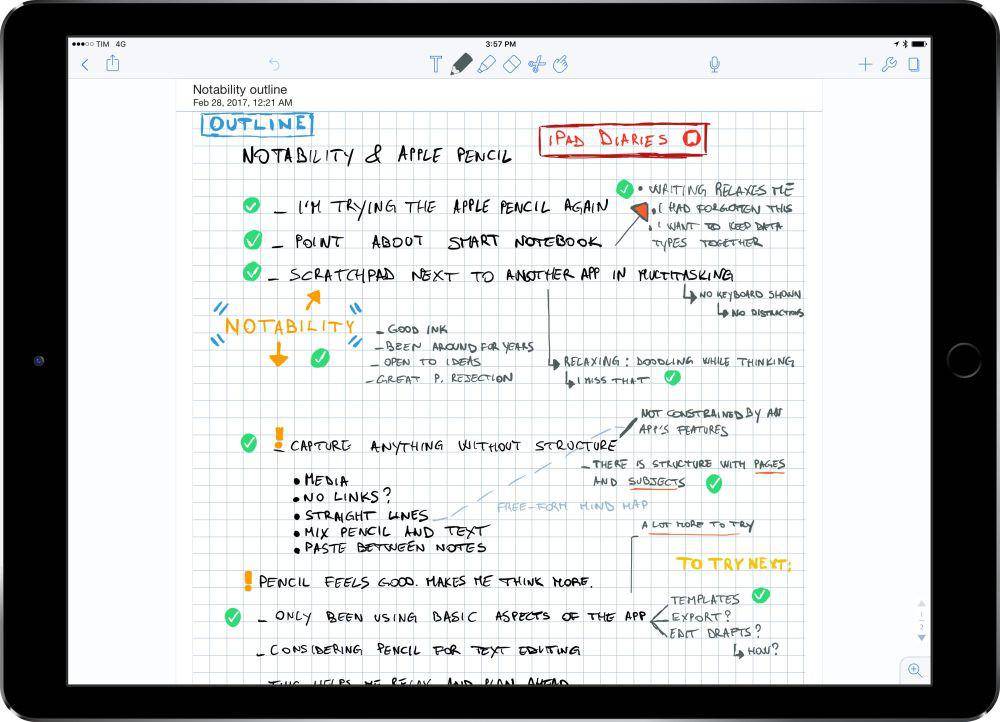 TIM 4G
3:57 PM
Notability outline
Feb 28, 2017, 12:21 AM
OUTLINE
iPAD DIARIES
NOTABILITY & APPLE PENCIL
– I'M TRYING THE APPLE PENCIL AGAIN
• WRITING RELAXES ME
• I HAD FORGOTTEN THIS
• I WANT TO KEEP DATA
TYPES TOGETHER
– POINT ABOUT SMART NOTEBOOK
– SCRATCHPAD NEXT TO ANOTHER APP IN MULTITASKING
NO KEYBOARD SHOWN
NO DISTRACTIONS
NOTABILITY
– GOOD INK
– BEEN AROUND FOR YEARS
– OPEN TO IDEAS
– GREAT P. REJECTION
RELAXING: DOODLING WHILE THINKING
I MISS THAT
! – CAPTURE ANYTHING WITHOUT STRUCTURE
NOT CONSTRAINED BY AN
APP'S FEATURES
– THERE IS STRUCTURE WITH PAGES
AND SUBJECTS
• MEDIA
• NO LINKS?
• STRAIGHT LINES
• MIX PENCIL AND TEXT
• PASTE BETWEEN NOTES
FREE-FORM MIND MAP
A LOT MORE TO TRY
TO TRY NEXT:
! PENCIL FEELS GOOD. MAKES ME THINK MORE.
– ONLY BEEN USING BASIC ASPECTS OF THE APP
TEMPLATES
EXPORT?
EDIT DRAFTS?
HOW?
– CONSIDERING PENCIL FOR TEXT EDITING
THIS HELPS ME RELAX AND PLAN AHEAD